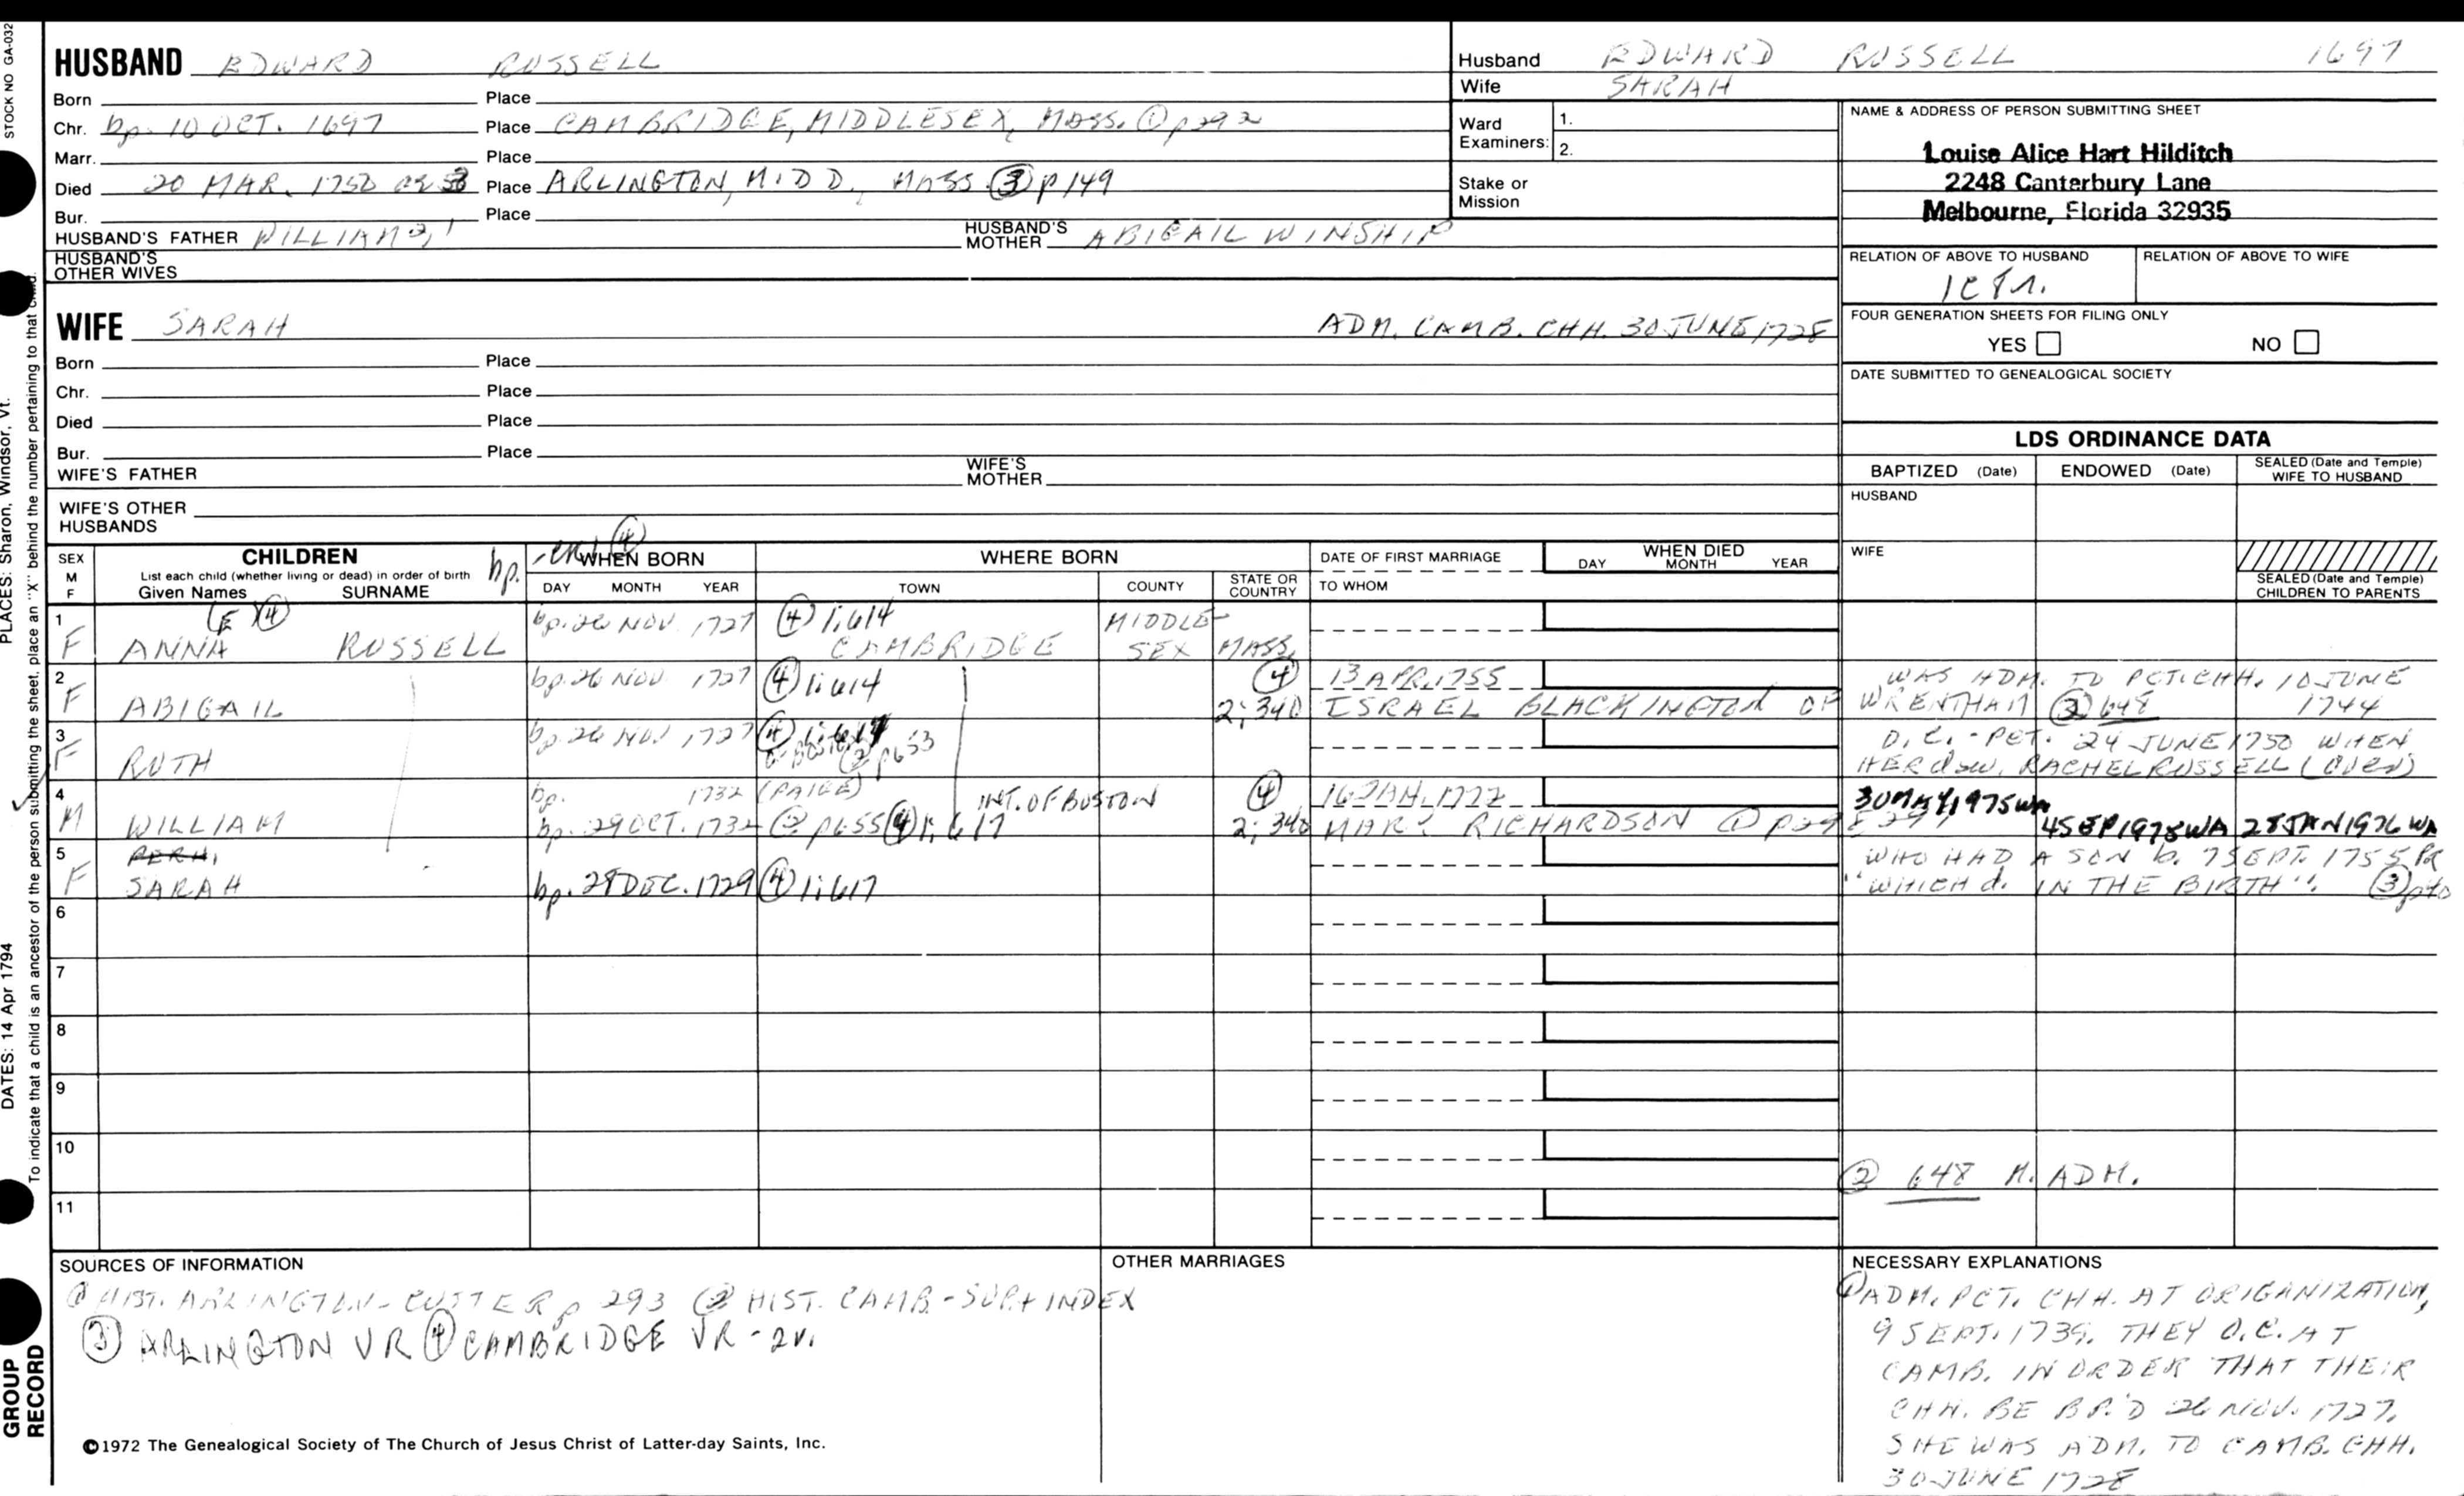 STOCK NO GA-032
HUSBAND EDWARD RUSSELL
Born Place
Chr. bp. 10 OCT. 1697 Place CAMBRIDGE, MIDDLESEX, MASS. ① p292
Marr. Place
Died 20 MAR. 1750 Place ARLINGTON, MIDD., MASS. ③ p149
Bur. Place
HUSBAND'S FATHER WILLIAM HUSBAND'S MOTHER ABIGAIL WINSHIP
HUSBAND'S OTHER WIVES
Husband EDWARD RUSSELL 1697
Wife SARAH
Ward Examiners: 1.
2.
Stake or Mission
NAME & ADDRESS OF PERSON SUBMITTING SHEET
Louise Alice Hart Hilditch
2248 Canterbury Lane
Melbourne, Florida 32935
RELATION OF ABOVE TO HUSBAND RELATION OF ABOVE TO WIFE
FOUR GENERATION SHEETS FOR FILING ONLY
YES NO
DATE SUBMITTED TO GENEALOGICAL SOCIETY
WIFE SARAH ADM. CAMB. CHH. 30 JUNE 1728
Born Place
Chr. Place
Died Place
Bur. Place
WIFE'S FATHER WIFE'S MOTHER
WIFE'S OTHER HUSBANDS
LDS ORDINANCE DATA
BAPTIZED (Date) ENDOWED (Date) SEALED (Date and Temple) WIFE TO HUSBAND
HUSBAND
WIFE
SEALED (Date and Temple) CHILDREN TO PARENTS
SEX M F
CHILDREN
List each child (whether living or dead) in order of birth
Given Names SURNAME
bp. ④
WHEN BORN
DAY MONTH YEAR
WHERE BORN
TOWN COUNTY STATE OR COUNTRY
DATE OF FIRST MARRIAGE
TO WHOM
WHEN DIED
DAY MONTH YEAR
1 (E) ④ bp. 26 NOV. 1727 ④ 1;614 MIDDLE-
F ANNA RUSSELL CAMBRIDGE SEX MASS.
2 bp. 26 NOV. 1727 ④ 1;614 ④ 13 APR. 1755 WAS ADM. TO PCT. CHH. 10 JUNE
F ABIGAIL 2;340 ISRAEL BLACKINGTON OF WRENTHAM ② 648 1744
3 bp. 26 NOV. 1727 ④ 1;614 O.C. - PCT. 24 JUNE 1750 WHEN
F RUTH ② p653 HER daw. RACHEL RUSSELL (OVER)
4 bp. 1732 (PAIGE) INT. OF BOSTON ④ 16 JAN. 1772 30MAY1975WA
M WILLIAM bp. 29 OCT. 1732 ② p655 ④ 1;617 2;340 MARY RICHARDSON ① 4SEP1975WA 28JAN1976WA
5 PERH. WHO HAD A SON b. 7 SEPT. 1755
F SARAH bp. 28 DEC. 1729 ④ 1;617 "WHICH d. IN THE BIRTH". ③
6
7
8
9
10
② 648 M. ADM.
11
SOURCES OF INFORMATION
① HIST. ARLINGTON - CUTTER p 293 ② HIST. CAMB. - SUP + INDEX
③ ARLINGTON VR ④ CAMBRIDGE VR - 2V.
OTHER MARRIAGES
NECESSARY EXPLANATIONS
① ADM. PCT. CHH. AT ORIGANIZATION,
9 SEPT. 1739. THEY O.C. AT
CAMB. IN ORDER THAT THEIR
CHH. BE BP.'D 26 NOV. 1727.
SHE WAS ADM. TO CAMB. CHH.
30 JUNE 1728
©1972 The Genealogical Society of The Church of Jesus Christ of Latter-day Saints, Inc.
PLACES: Sharon, Windsor, Vt.
DATES: 14 Apr 1794
To indicate that a child is an ancestor of the person submitting the sheet, place an "X" behind the number pertaining to that child.
GROUP RECORD